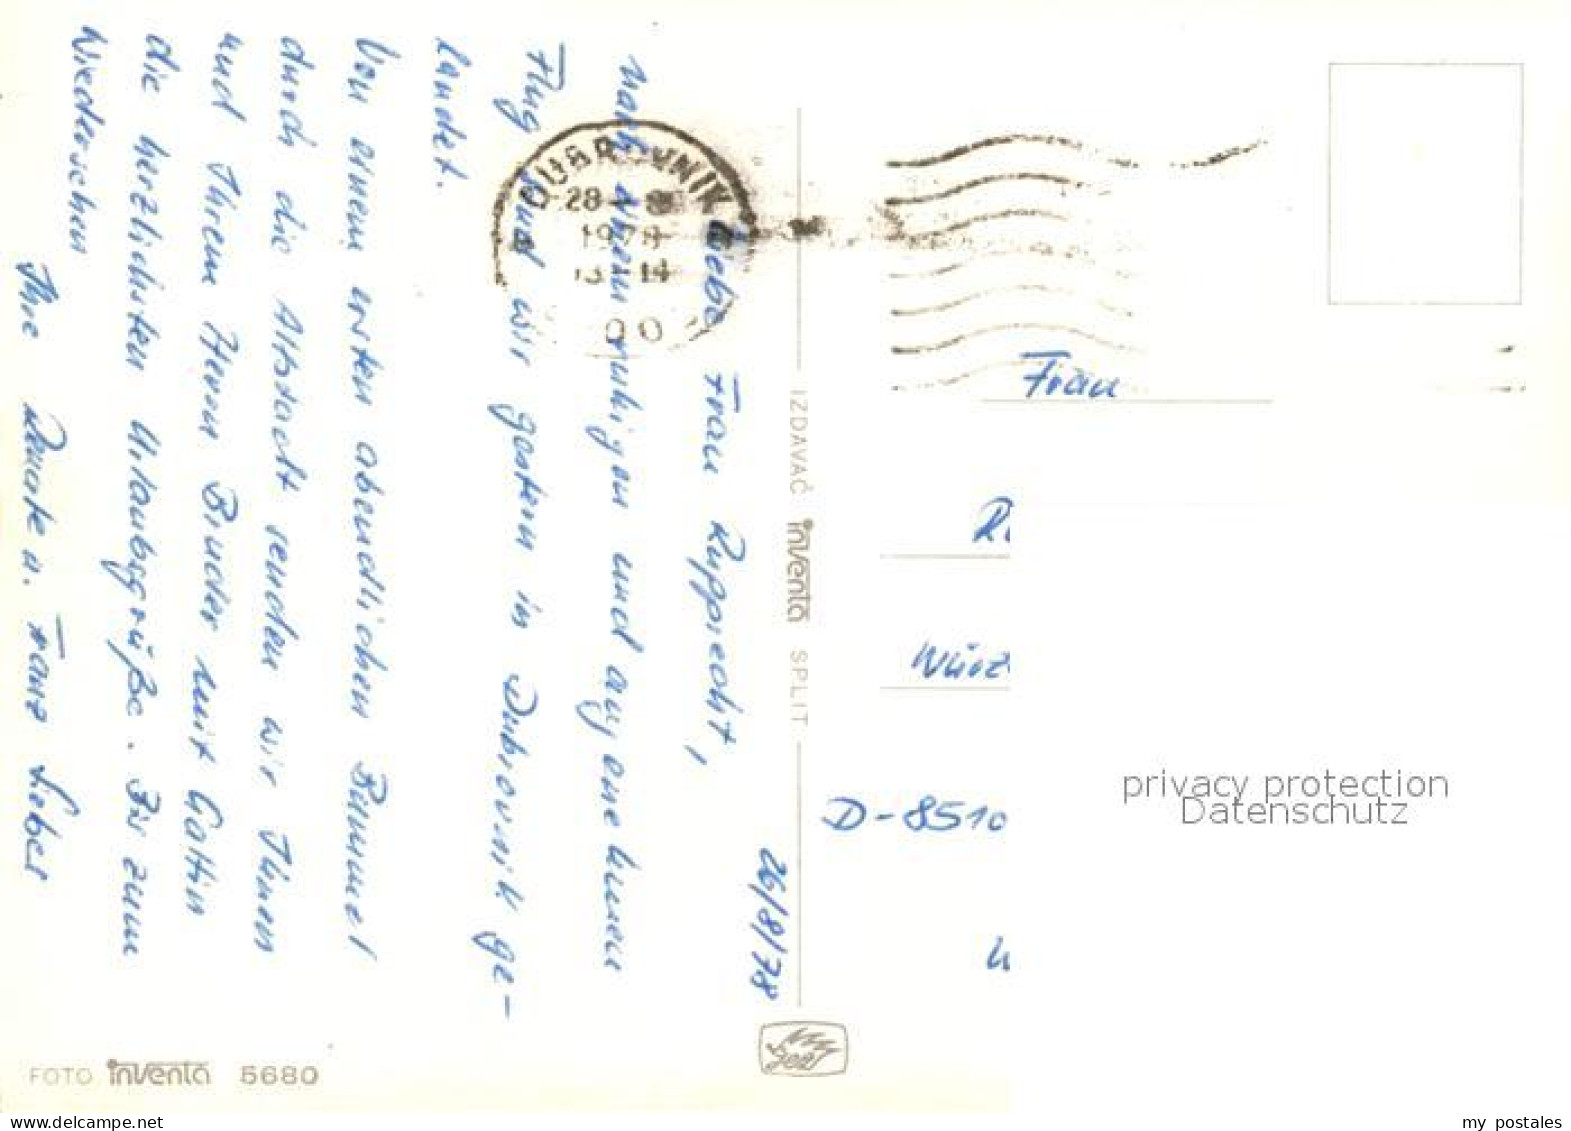 26/8/78
Liebe Frau Rupprecht,
nach einem ruhigen und angenehmen
Flug sind wir gestern in Dubrovnik ge-
landet.
Von einem ersten abendlichen Bummel
durch die Altstadt senden wir Ihnen
und Ihrem Herrn Bruder mit Gattin
die herzlichsten Urlaubsgrüße. Bis zum
Wiedersehen
Ihre Renate u. Franz Lieber
DUBROVNIK
28 8
1978
13-14
IZDAVAČ inventa SPLIT
Frau
D-8510
FOTO inventa 5680
privacy protection
Datenschutz
my postales